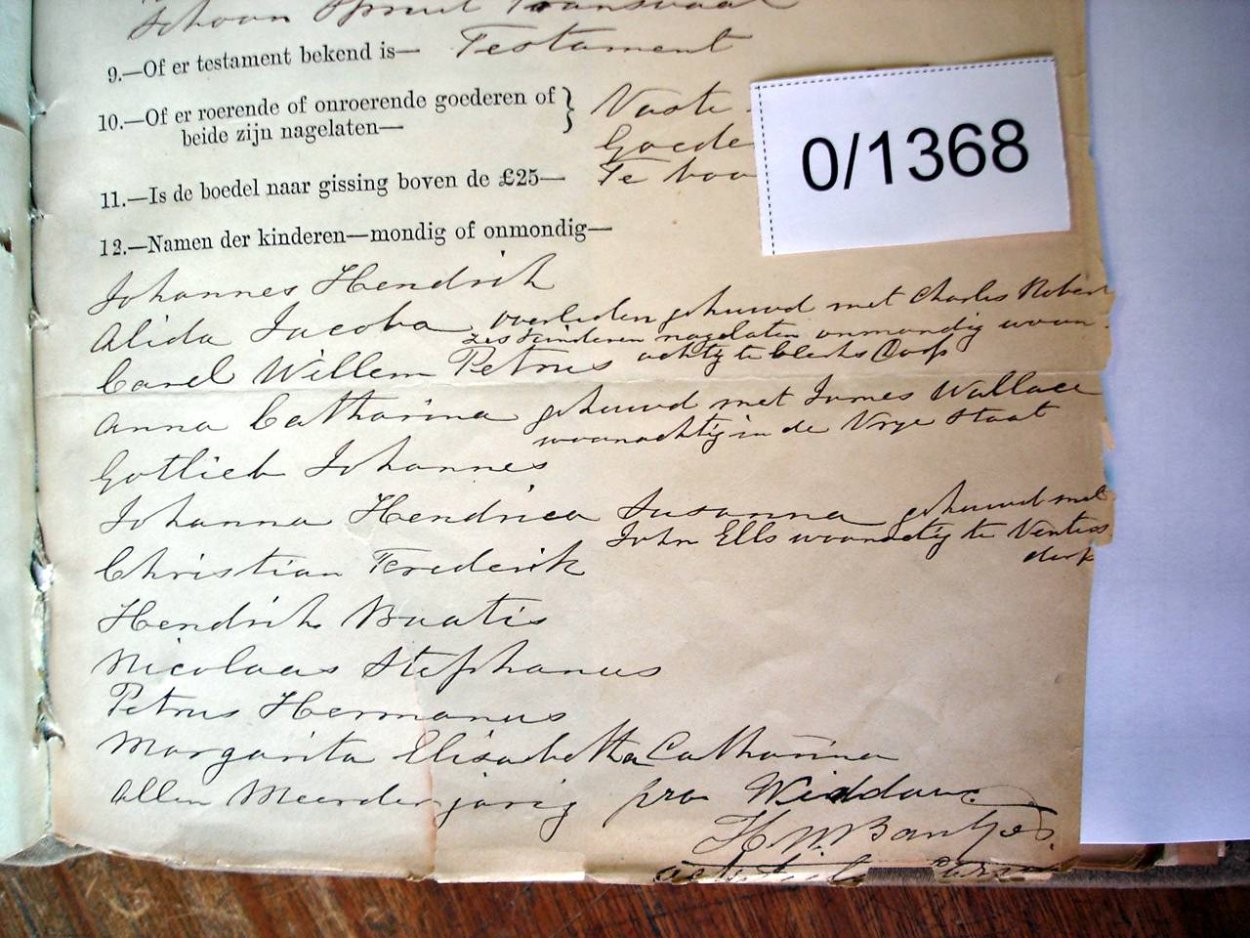 Schoon Spruit Transvaal
9.—Of er testament bekend is— Testament
10.—Of er roerende of onroerende goederen of } Vaste
beide zijn nagelaten— Goede
11.—Is de boedel naar gissing boven de £25— Te boo
0/1368
12.—Namen der kinderen—mondig of onmondig—
Johannes Hendrik
Alida Jacoba overleden gehuwd met Charles Robert
zes kinderen nagelaten onmondig woon
achtig te Klerks Dorp
Carel Willem Petrus
Anna Catharina gehuwd met James Wallace
woonachtig in de Vrye Staat
Gotlieb Johannes
Johanna Hendrica Susanna gehuwd met
John Ells woonachtig te Venters
dorp
Christian Frederik
Hendrik
Nicolaas Stephanus
Petrus Hermanus
Margarita Elisabetha Catharina
Allen Meerder jarig pro Widdowe
H. N. Bantjes